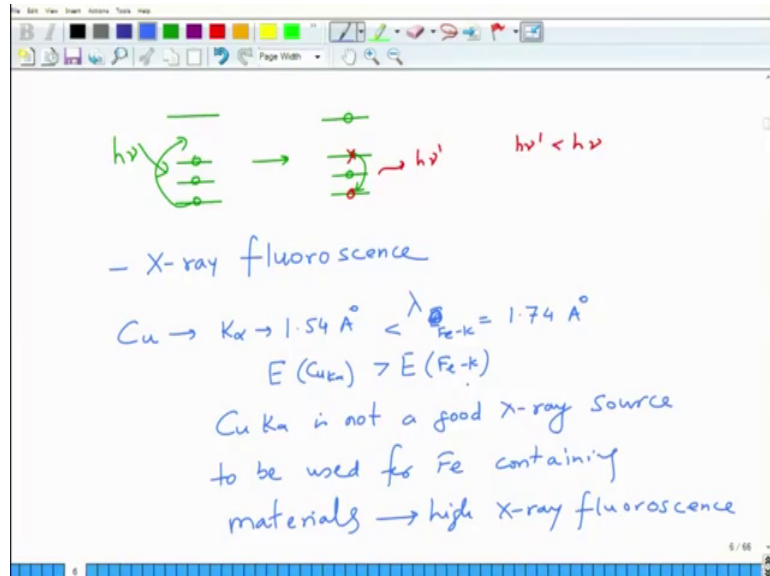 File Edit View Insert Actions Tools Help
B I
Page Width
hν → hν' hν' < hν
- X-ray fluoroscence
Cu → Kα → 1.54 A° < λ Fe-K = 1.74 A°
E (CuKα) > E (Fe-K)
Cu Kα is not a good X-ray source
to be used for Fe containing
materials → high X-ray fluoroscence
6 / 66
6